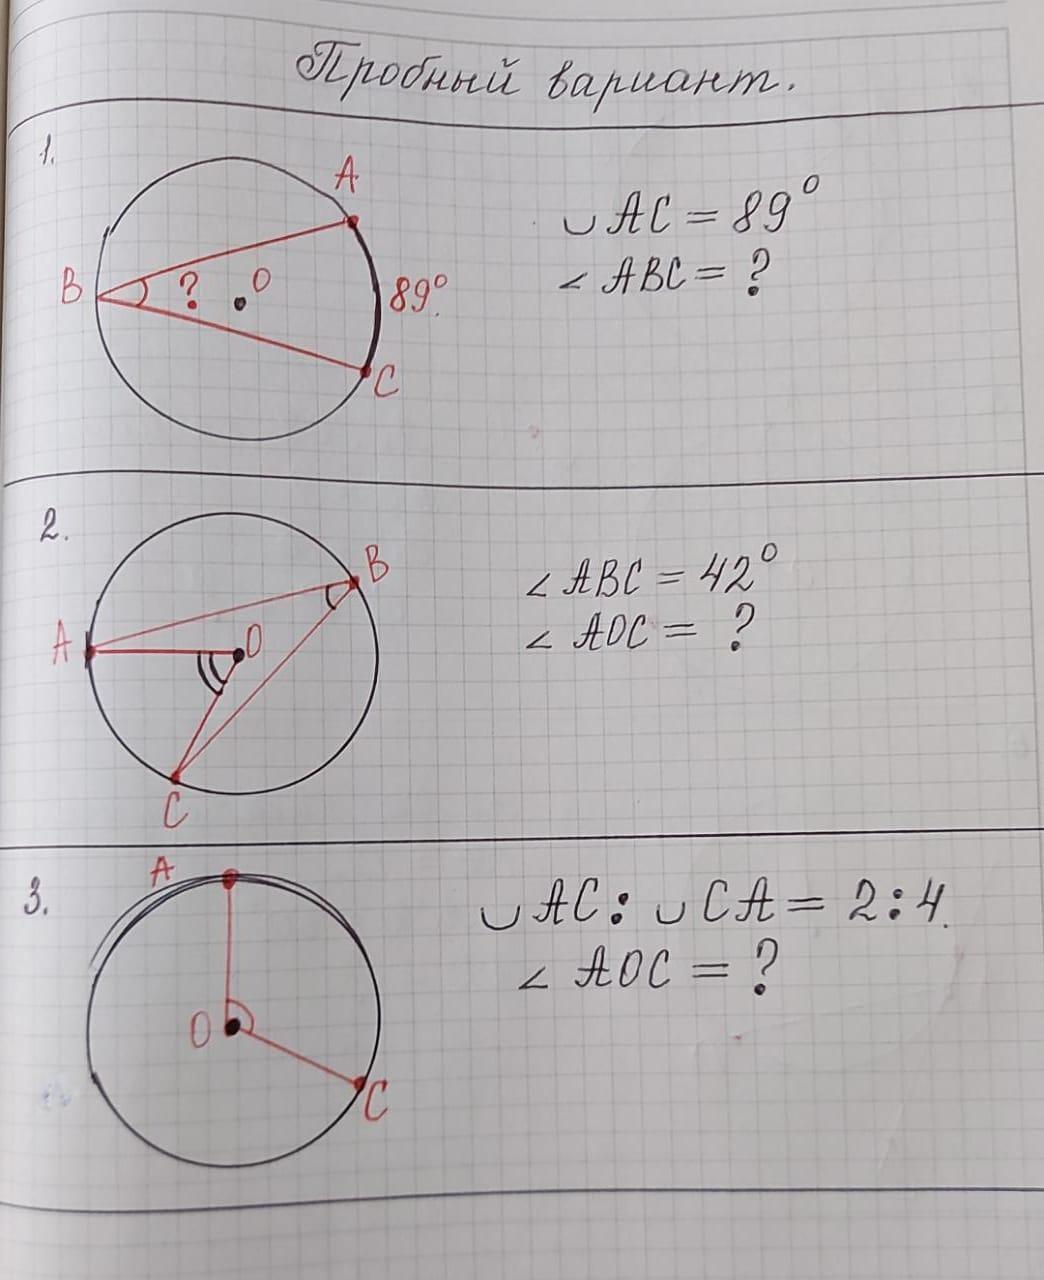 Пробный вариант.
1.
A
B ? O 89°.
C
◡ AC = 89°
∠ ABC = ?
2.
B
A O
C
∠ ABC = 42°
∠ AOC = ?
3.
A
O
C
◡ AC : ◡ CA = 2:4.
∠ AOC = ?